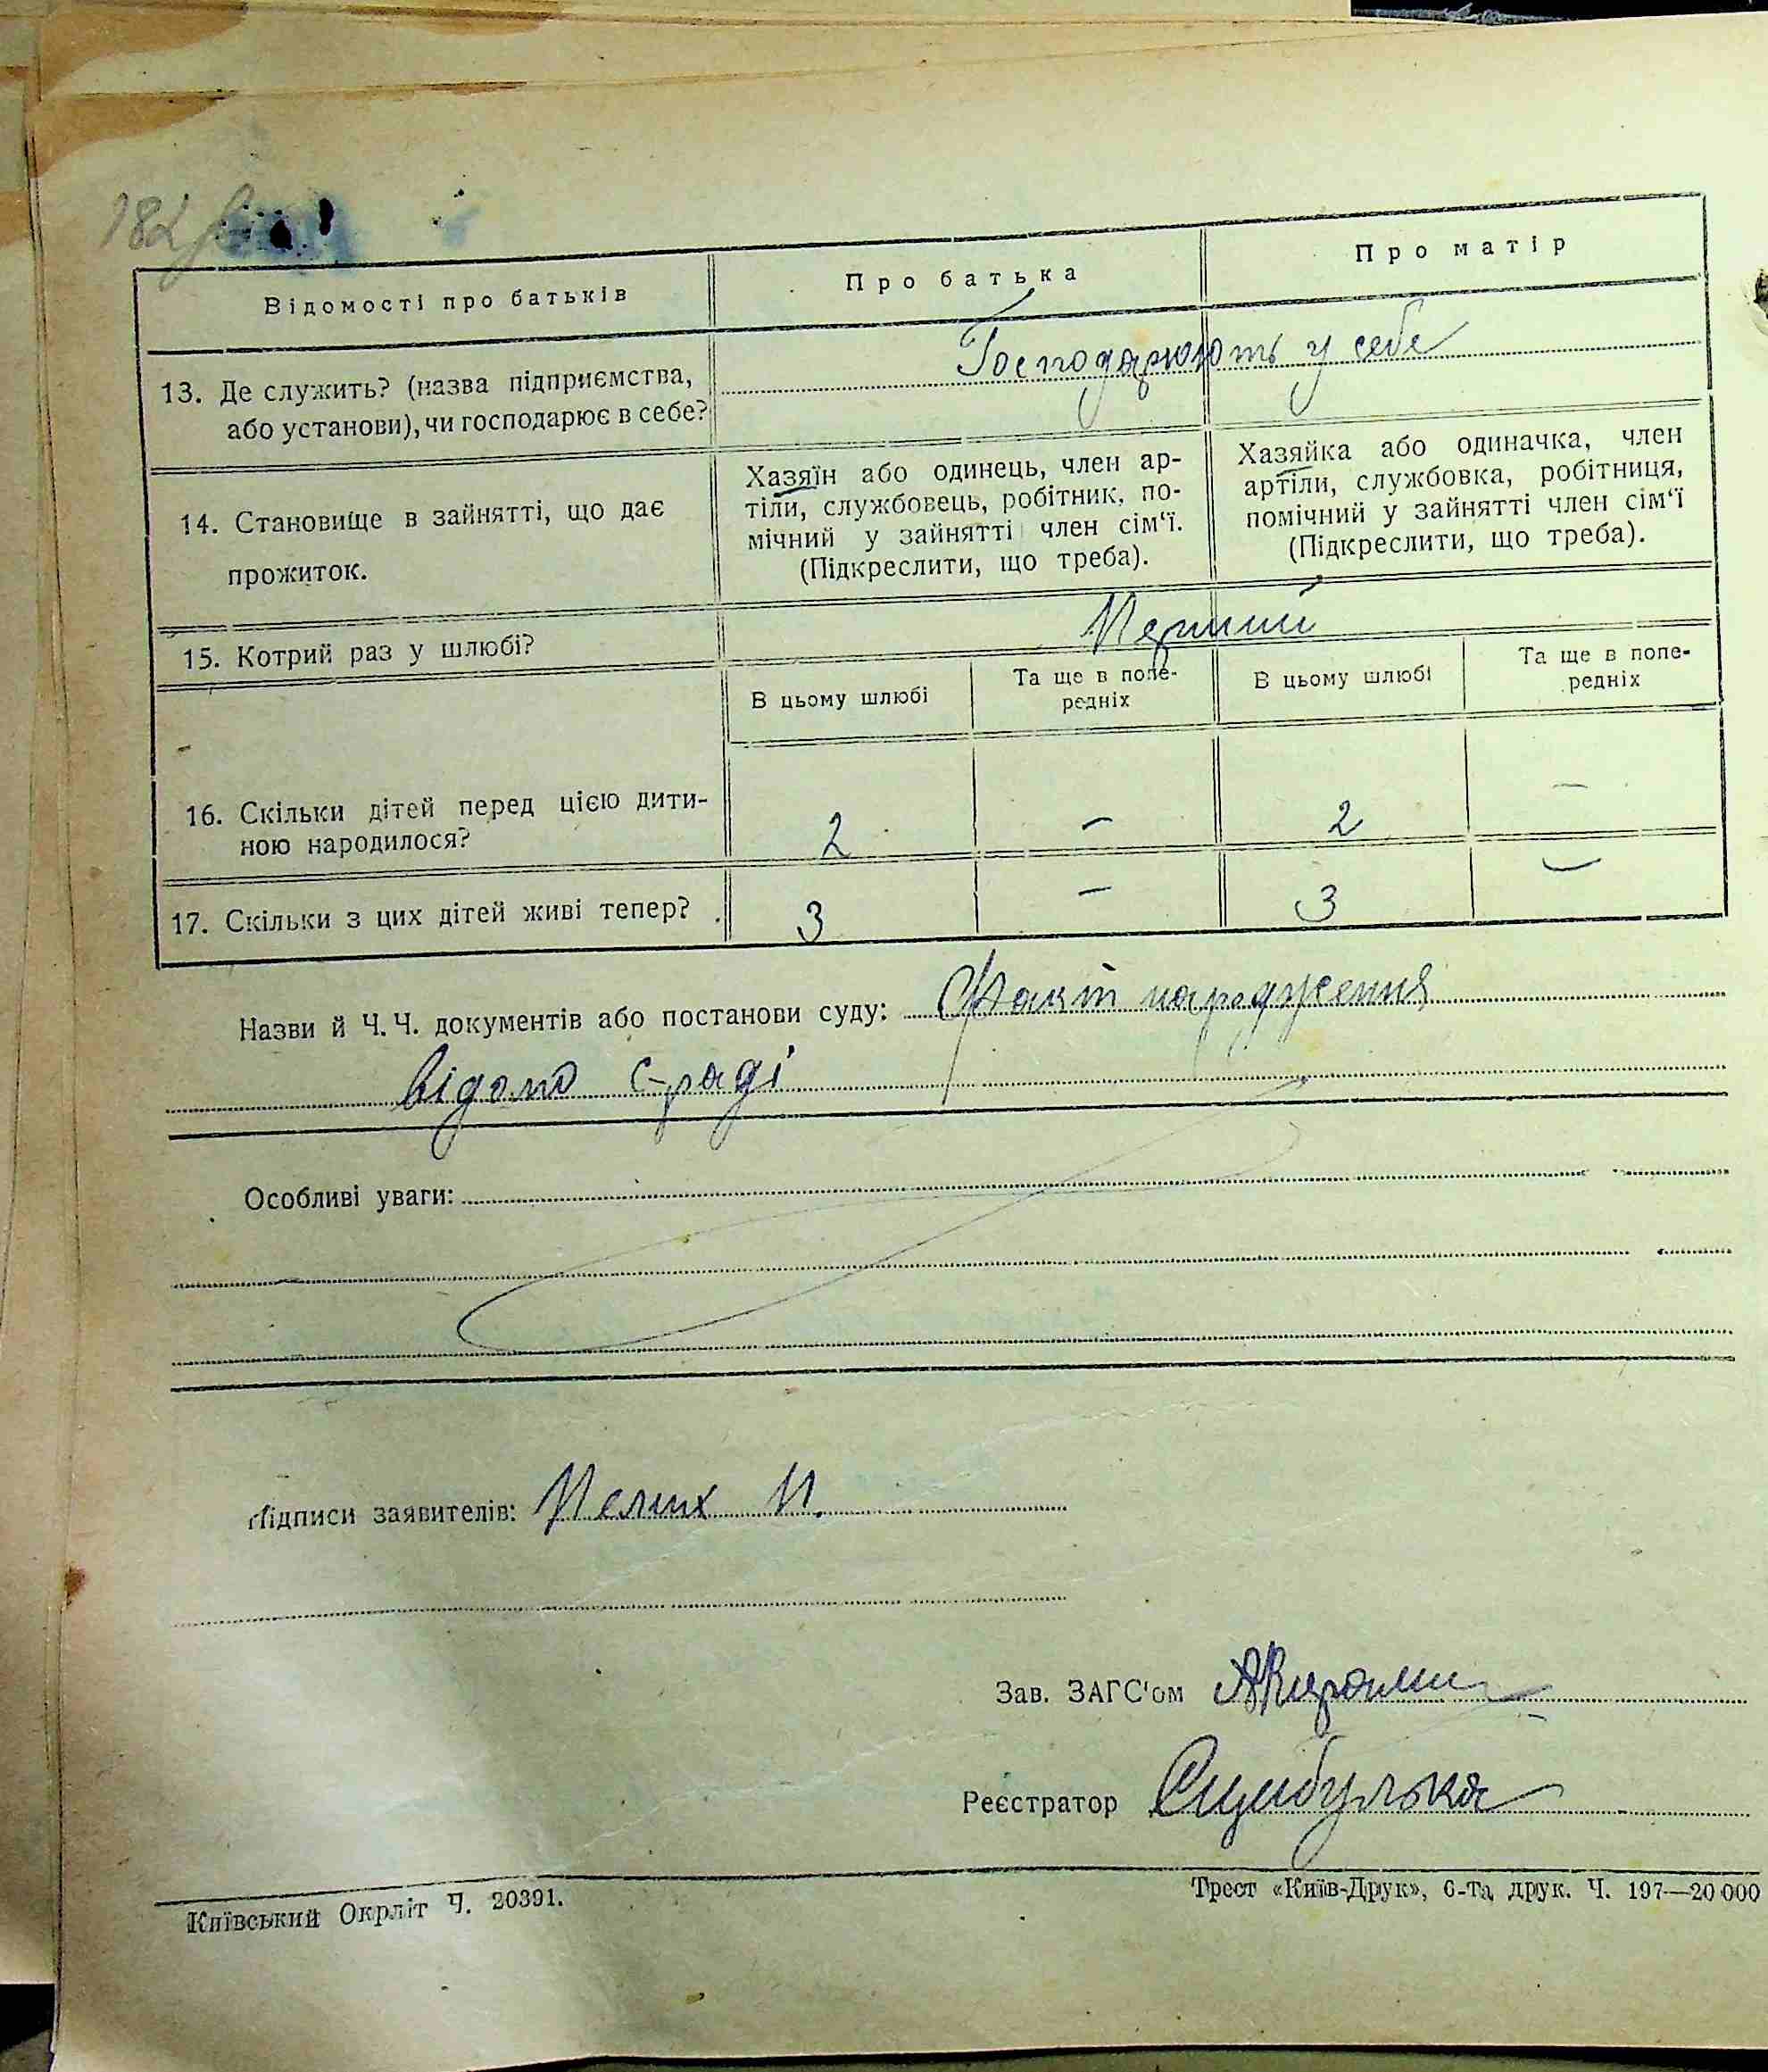 182
Відомості про батьків
Про батька
Про матір
13. Де служить? (назва підприємства,
або установи), чи господарює в себе?
Господарюють у себе
14. Становище в зайнятті, що дає
прожиток.
Хазяїн або одинець, член ар-
тіли, службовець, робітник, по-
мічний у зайнятті член сім‘ї.
(Підкреслити, що треба).
Хазяйка або одиначка, член
артіли, службовка, робітниця,
помічний у зайнятті член сім‘ї
(Підкреслити, що треба).
15. Котрий раз у шлюбі?
Перший
В цьому шлюбі
Та ще в попе-
редніх
В цьому шлюбі
Та ще в попе-
редніх
16. Скільки дітей перед цією дити-
ною народилося?
2 - 2 -
17. Скільки з цих дітей живі тепер?
3 - 3 -
Назви й Ч. Ч. документів або постанови суду: Факт народження
відомо с-раді
Особливі уваги:
Підписи заявителів: Пелих П.
Зав. ЗАГС'ом
Реєстратор
Київський Окрліт Ч. 20391.
Трест «Київ-Друк», 6-та друк. Ч. 197—20 000